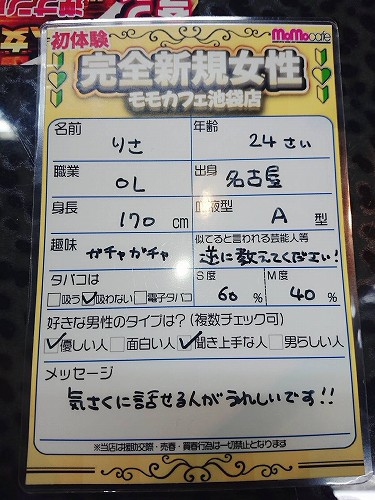 初体験
MoMo cafe
完全新規女性
モモカフェ池袋店
名前
りさ
年齢
24さい
職業
OL
出身
名古屋
身長
170cm
血液型
A型
趣味
ガチャガチャ
似てると言われる芸能人等
逆に教えてください!
タバコは
吸う 吸わない 電子タバコ
S度
60%
M度
40%
好きな男性のタイプは?(複数チェック可)
優しい人 面白い人 聞き上手な人 男らしい人
メッセージ
気さくに話せる人がうれしいです!!
※当店は援助交際・売春・買春行為は一切禁止となります